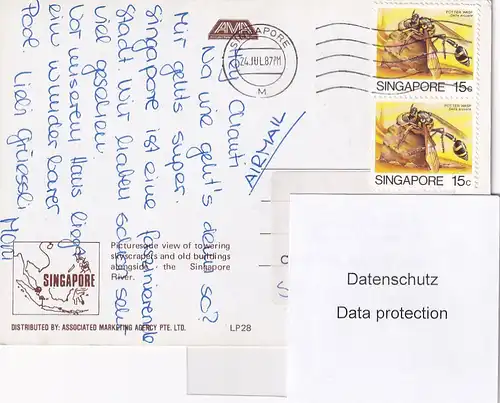 Hoi Avanti
Na wie geht's denn so?
Mir gehts super.
Singapore ist eine faszinierende
Stadt. Wir haben schon sehr
viel gesehen.
Vor unserem Haus liegt
ein wunderbarer
Pool. Liebi Grüessli
AIRMAIL
AMA
SINGAPORE
24 JUL 87 PM
M
POTTER WASP
SINGAPORE 15c
POTTER WASP
SINGAPORE 15c
SINGAPORE
Picturesque view of towering
skyscrapers and old buildings
alongside the Singapore
River.
DISTRIBUTED BY: ASSOCIATED MARKETING AGENCY PTE. LTD.
LP28
Datenschutz
Data protection